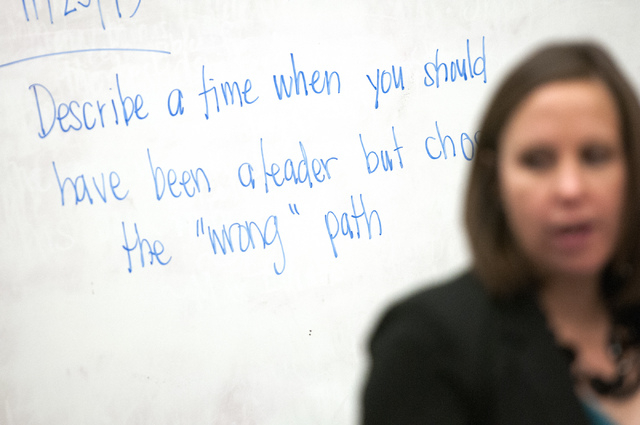 Describe a time when you should
have been a leader but
the "wrong" path